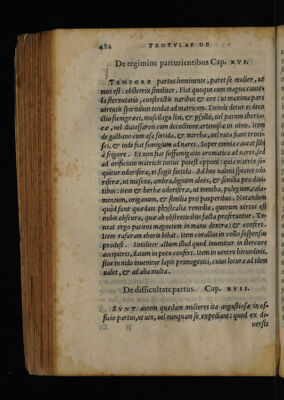 482 TROTVLAE DE
De regimine parturientibus Cap. XVI.
TEMPORE partus imminente, paret se mulier, ut
mos est. obstetrix similiter. Fiat quoque cum magna caute
la sternutatio, constrictis naribus & ore: ut maxima pars
virtutis spiritualium tendat ad matricem. Deinde detur ei deco
ctio foenugraeci, muscilago lini, & psyllii, uel parum theria-
cae, uel diatessaron cum decoctione artemisiae in uino. Item
de galbano cum asa foetida, & mirrha, uel ruta fiant trocis-
ci, & inde fiat fumigium ad nares. Super omnia caueat sibi
à frigore. Et non fiat suffumigatio aromatica ad nares, sed
ad orificium matricis tutius potest apponi: quia matrix se-
quitur odorifera, & fugit foetida. Ad hoc ualent species odo
riferae, ut muscus, ambra, lignum aloes, & similia pro diui-
tibus: item & herbae odoriferae, ut mentha, pulegium, cala-
mentum, origanum, & similia pro pauperibus. Notandum
quòd sunt quaedam physicalia remedia, quorum uirtus est
nobis obscura, quae ab obstetricibus facta proferuntur. Te-
neat ergo patiens magnetem in manu dextra: & confert.
Item rasuram eboris bibat. Item corallum in collo suspensum
prodest. Similiter album illud quod inuenitur in stercore
accipitris, datum in potu confert. Item in uentre hirundinis,
siue in nido inuenitur lapis primogeniti, cuius lotura ad idem
ualet, & ad alia multa.
De difficultate partus. Cap. XVII.
SVNT autem quaedam mulieres ita angustiosae in of-
ficio partus, ut uix, uel nunquam se expediant: quod ex di
uersis